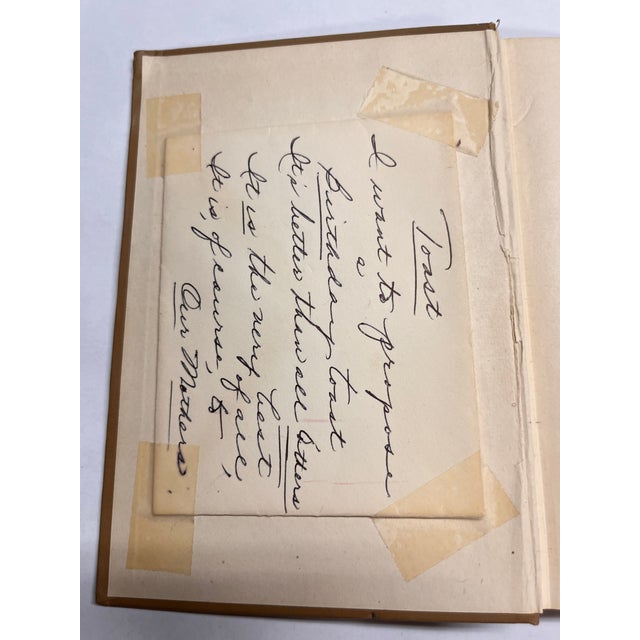 Toast
I want to propose
a
Birthday toast
It's better than all Others
It is the very best
of all,
It is, of course, to
Our Mothers.